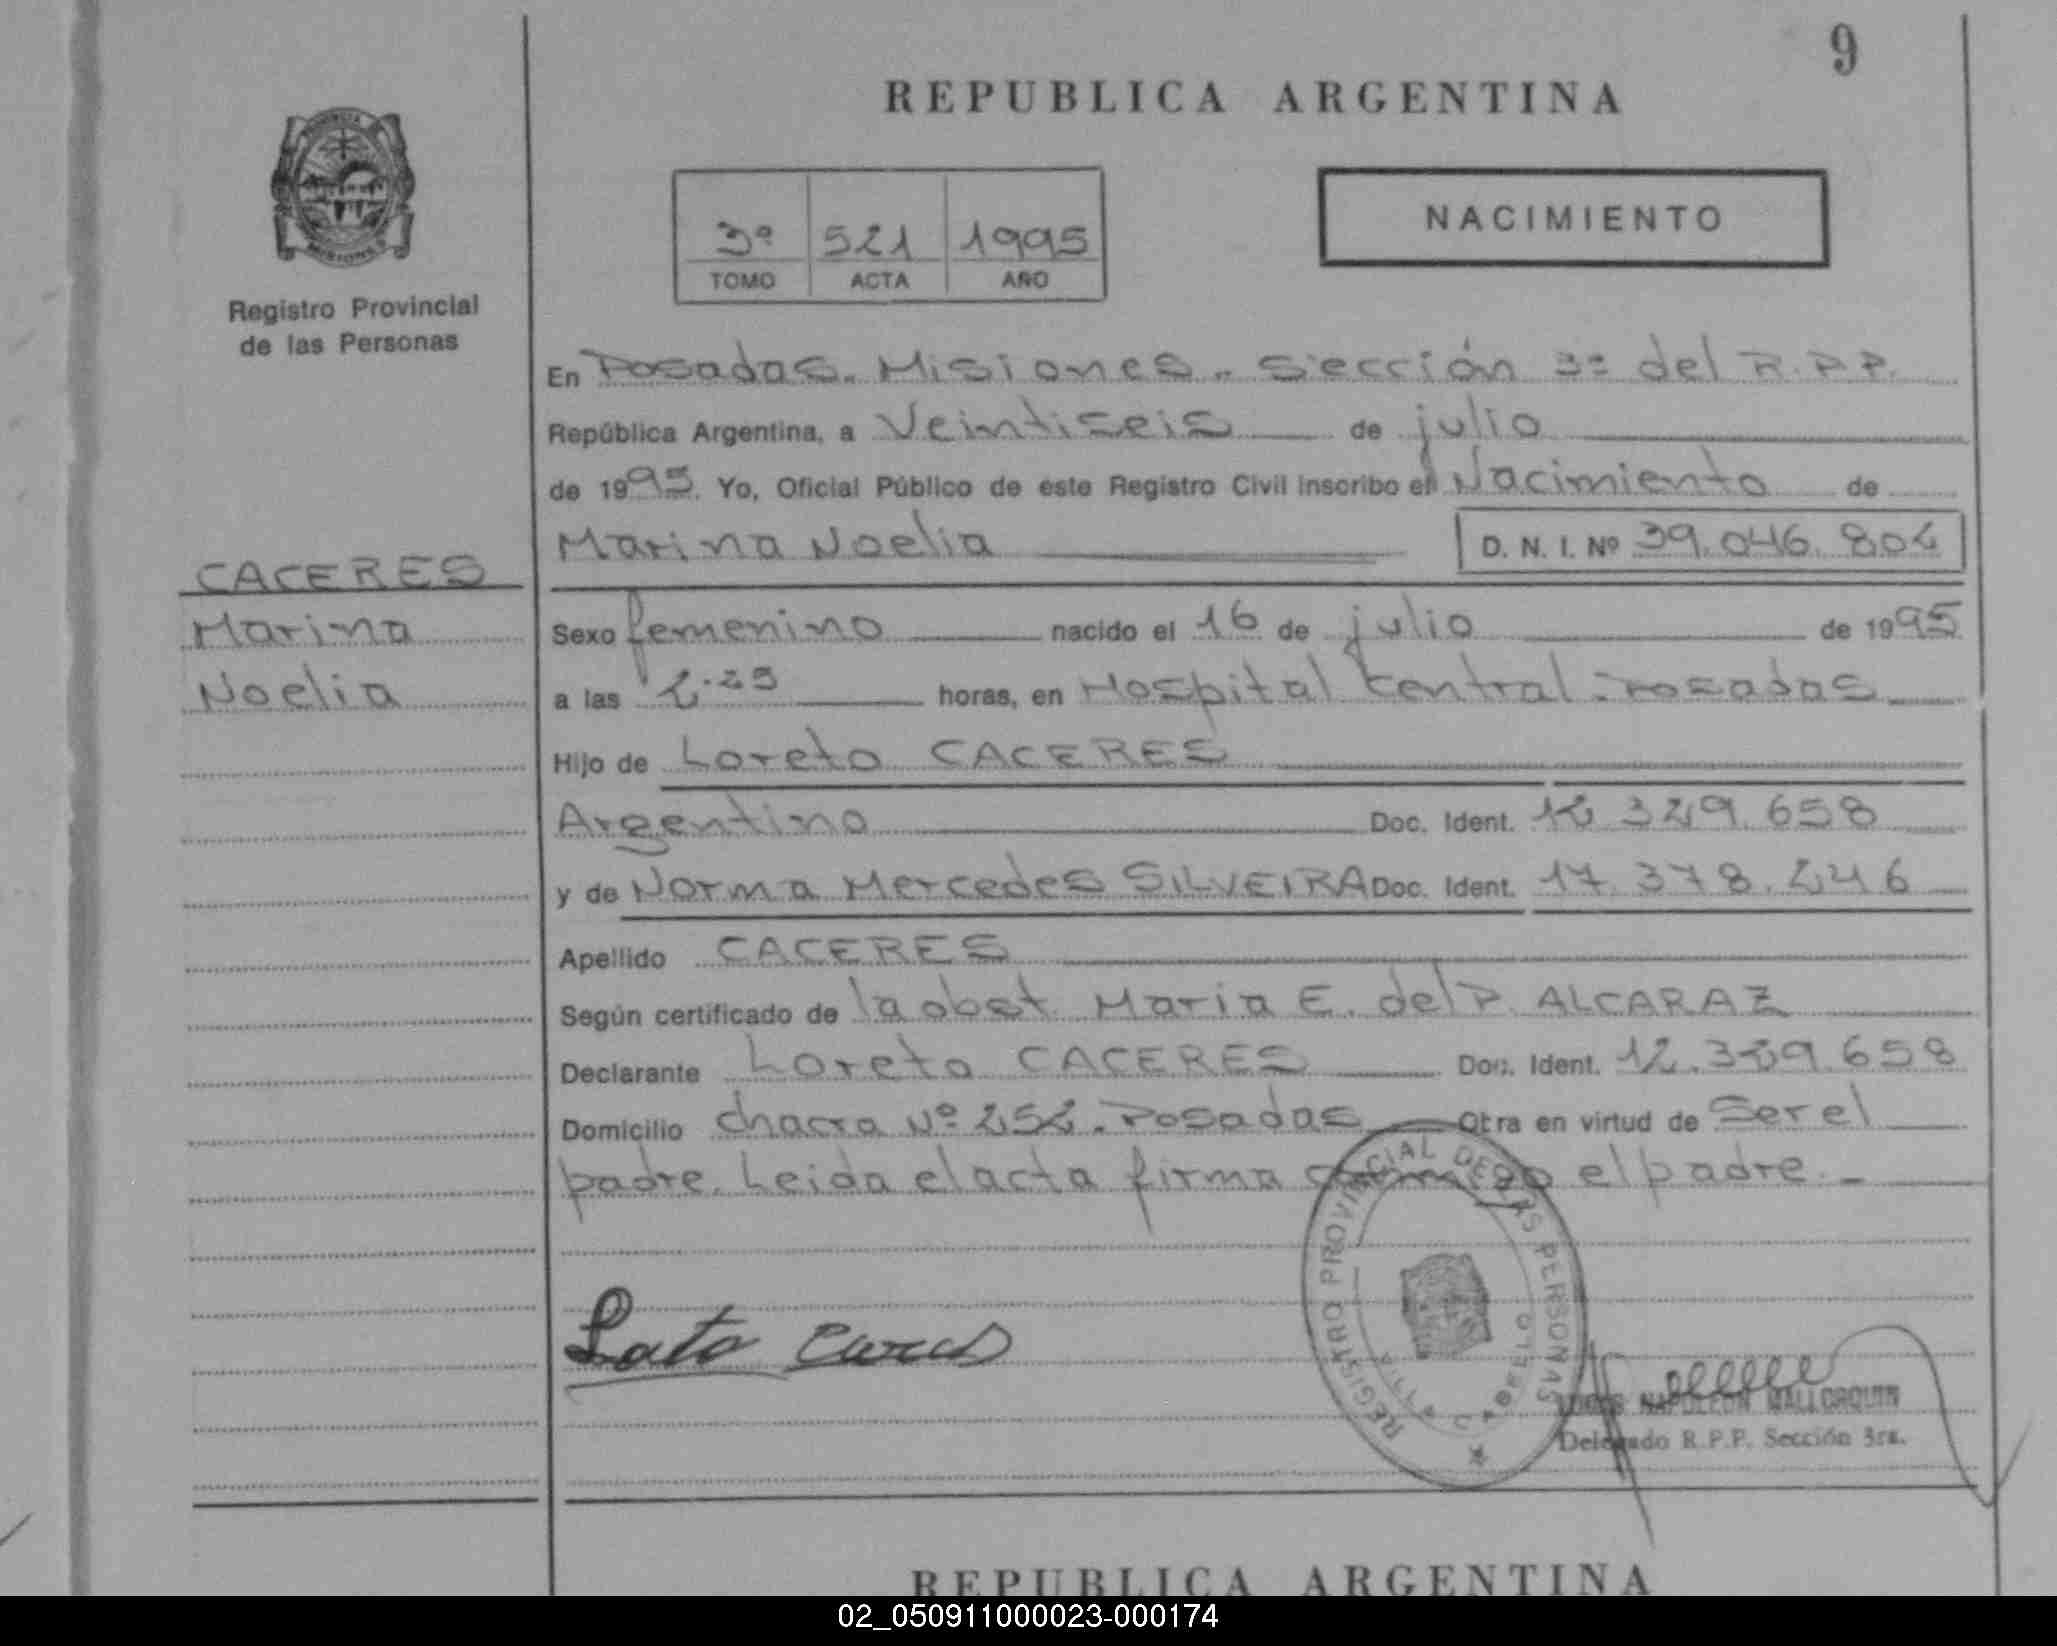 9
REPUBLICA ARGENTINA
PROVINCIA DE MISIONES
Registro Provincial
de las Personas
3º 521 1995
TOMO ACTA AÑO
NACIMIENTO
En Posadas. Misiones. Sección 3º del R.P.P.
República Argentina, a Veintiseis de julio
de 1995. Yo, Oficial Público de este Registro Civil inscribo el Nacimiento de
Marina Noelia D. N. I. Nº 39.046.804
CACERES
Marina
Noelia
Sexo femenino nacido el 16 de julio de 1995
a las 2.25 horas, en Hospital Central - Posadas
Hijo de Loreto CACERES
Argentino Doc. Ident. 12.329.658
y de Norma Mercedes SILVEIRA Doc. Ident. 17.378.246
Apellido CACERES
Según certificado de la obst. Maria E. del P. ALCARAZ
Declarante Loreto CACERES Doc. Ident. 12.329.658
Domicilio chacra Nº 252. Posadas Obra en virtud de Ser el
padre. Leida el acta firma conmigo el padre.-
REGISTRO PROVINCIAL DE LAS PERSONAS
NAPOLEON MALLORQUIN
Delegado R.P.P. Sección 3ra.
REPUBLICA ARGENTINA
02_050911000023-000174